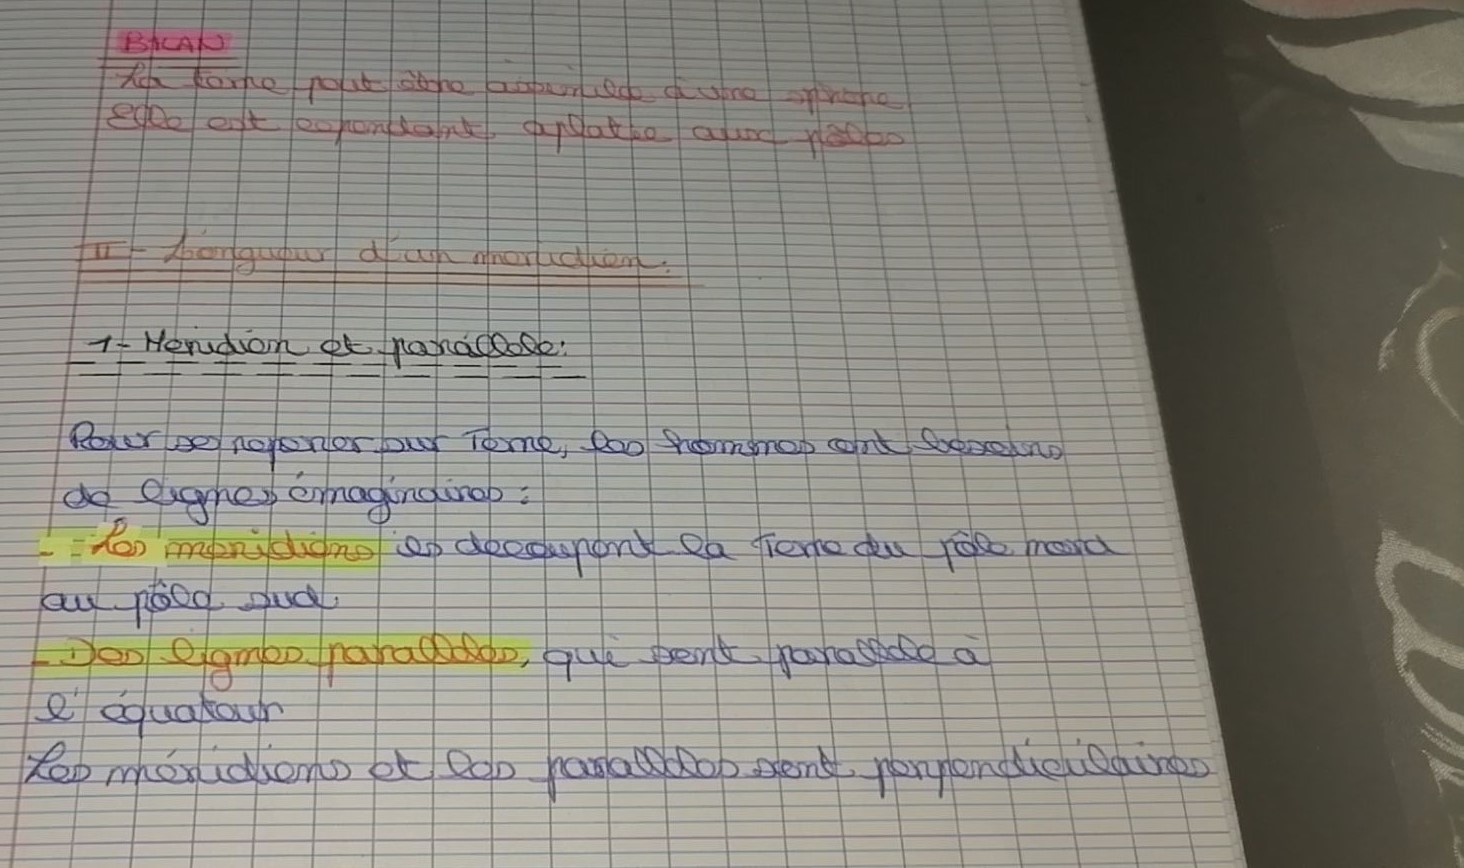 BILAN
La terre peut être assimilée à une sphère
Elle est cependant aplatie aux pôles
II - Longueur d'un méridien.
1- Méridien et parallèle:
Pour se reperer sur Terre, les hommes ont besoins
de lignes imaginaires :
- Les méridiens les decoupent la Terre du pôle nord
au pôle sud.
- Des lignes parallèles, qui sont parallèle à
l'équateur
Les méridiens et les parallèles sont perpendiculaires